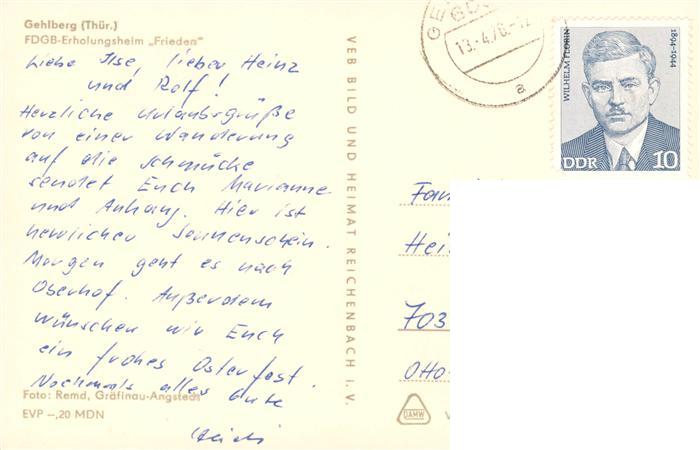 Gehlberg (Thür.)
FDGB-Erholungsheim „Frieden"
Liebe Ilse, lieber Heinz
und Rolf!
Herzliche Urlaubsgrüße
von einer Wanderung
auf die Schmücke
sendet Euch Marianne
und Anhang. Hier ist
herrlicher Sonnenschein.
Morgen geht es nach
Oberhof. Außerdem
wünschen wir Euch
ein frohes Osterfest.
Nochmals alles Gute
Foto: Remd, Gräfinau-Angstedt
EVP –,20 MDN
VEB BILD UND HEIMAT REICHENBACH I. V.
13.-4.76.-12
a
WILHELM FLORIN
1894-1944
DDR 10
Fam
Hei
703
Otto-
DAMW
V